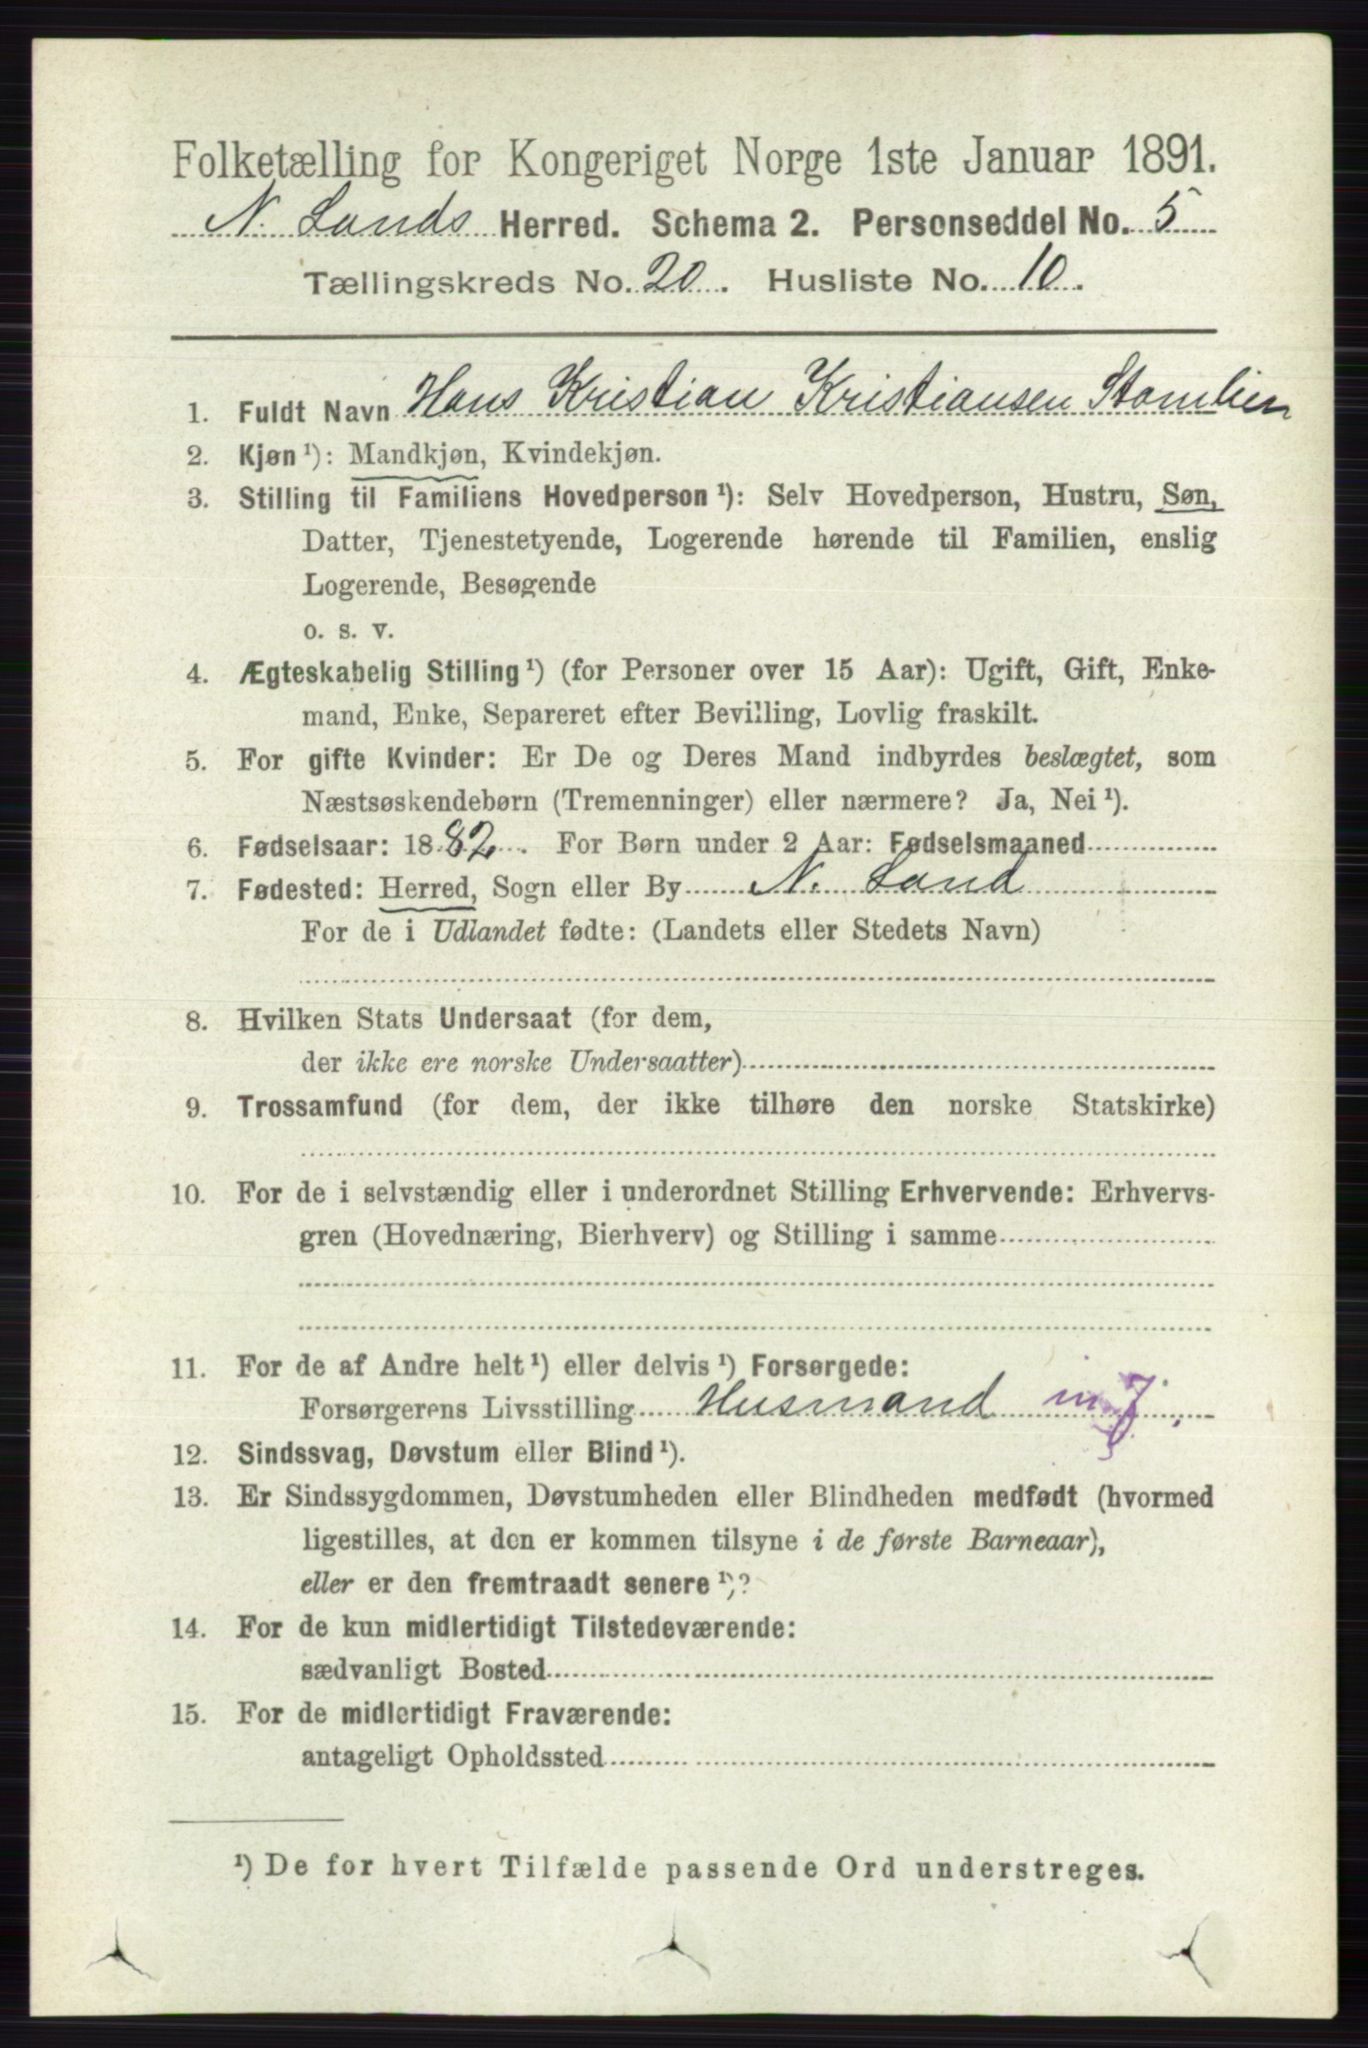 Folketælling for Kongeriget Norge 1ste Januar 1891.
N. Lands Herred. Schema 2. Personseddel No. 5
Tællingskreds No. 20. Husliste No. 10.
1. Fuldt Navn Hans Kristian Kristiansen Stomlien
2. Kjøn ¹): Mandkjøn, Kvindekjøn.
3. Stilling til Familiens Hovedperson ¹): Selv Hovedperson, Hustru, Søn,
Datter, Tjenestetyende, Logerende hørende til Familien, enslig
Logerende, Besøgende
o. s. v.
4. Ægteskabelig Stilling ¹) (for Personer over 15 Aar): Ugift, Gift, Enke-
mand, Enke, Separeret efter Bevilling, Lovlig fraskilt.
5. For gifte Kvinder: Er De og Deres Mand indbyrdes beslægtet, som
Næstsøskendebørn (Tremenninger) eller nærmere? Ja, Nei ¹).
6. Fødselsaar: 1882. For Børn under 2 Aar: Fødselsmaaned
7. Fødested: Herred, Sogn eller By N. Land
For de i Udlandet fødte: (Landets eller Stedets Navn)
8. Hvilken Stats Undersaat (for dem,
der ikke ere norske Undersaatter)
9. Trossamfund (for dem, der ikke tilhøre den norske Statskirke)
10. For de i selvstændig eller i underordnet Stilling Erhvervende: Erhvervs-
gren (Hovednæring, Bierhverv) og Stilling i samme
11. For de af Andre helt ¹) eller delvis ¹) Forsørgede:
Forsørgerens Livsstilling Husmand m J.
12. Sindssvag, Døvstum eller Blind ¹).
13. Er Sindssygdommen, Døvstumheden eller Blindheden medfødt (hvormed
ligestilles, at den er kommen tilsyne i de første Barneaar),
eller er den fremtraadt senere ¹)?
14. For de kun midlertidigt Tilstedeværende:
sædvanligt Bosted
15. For de midlertidigt Fraværende:
antageligt Opholdssted
¹) De for hvert Tilfælde passende Ord understreges.